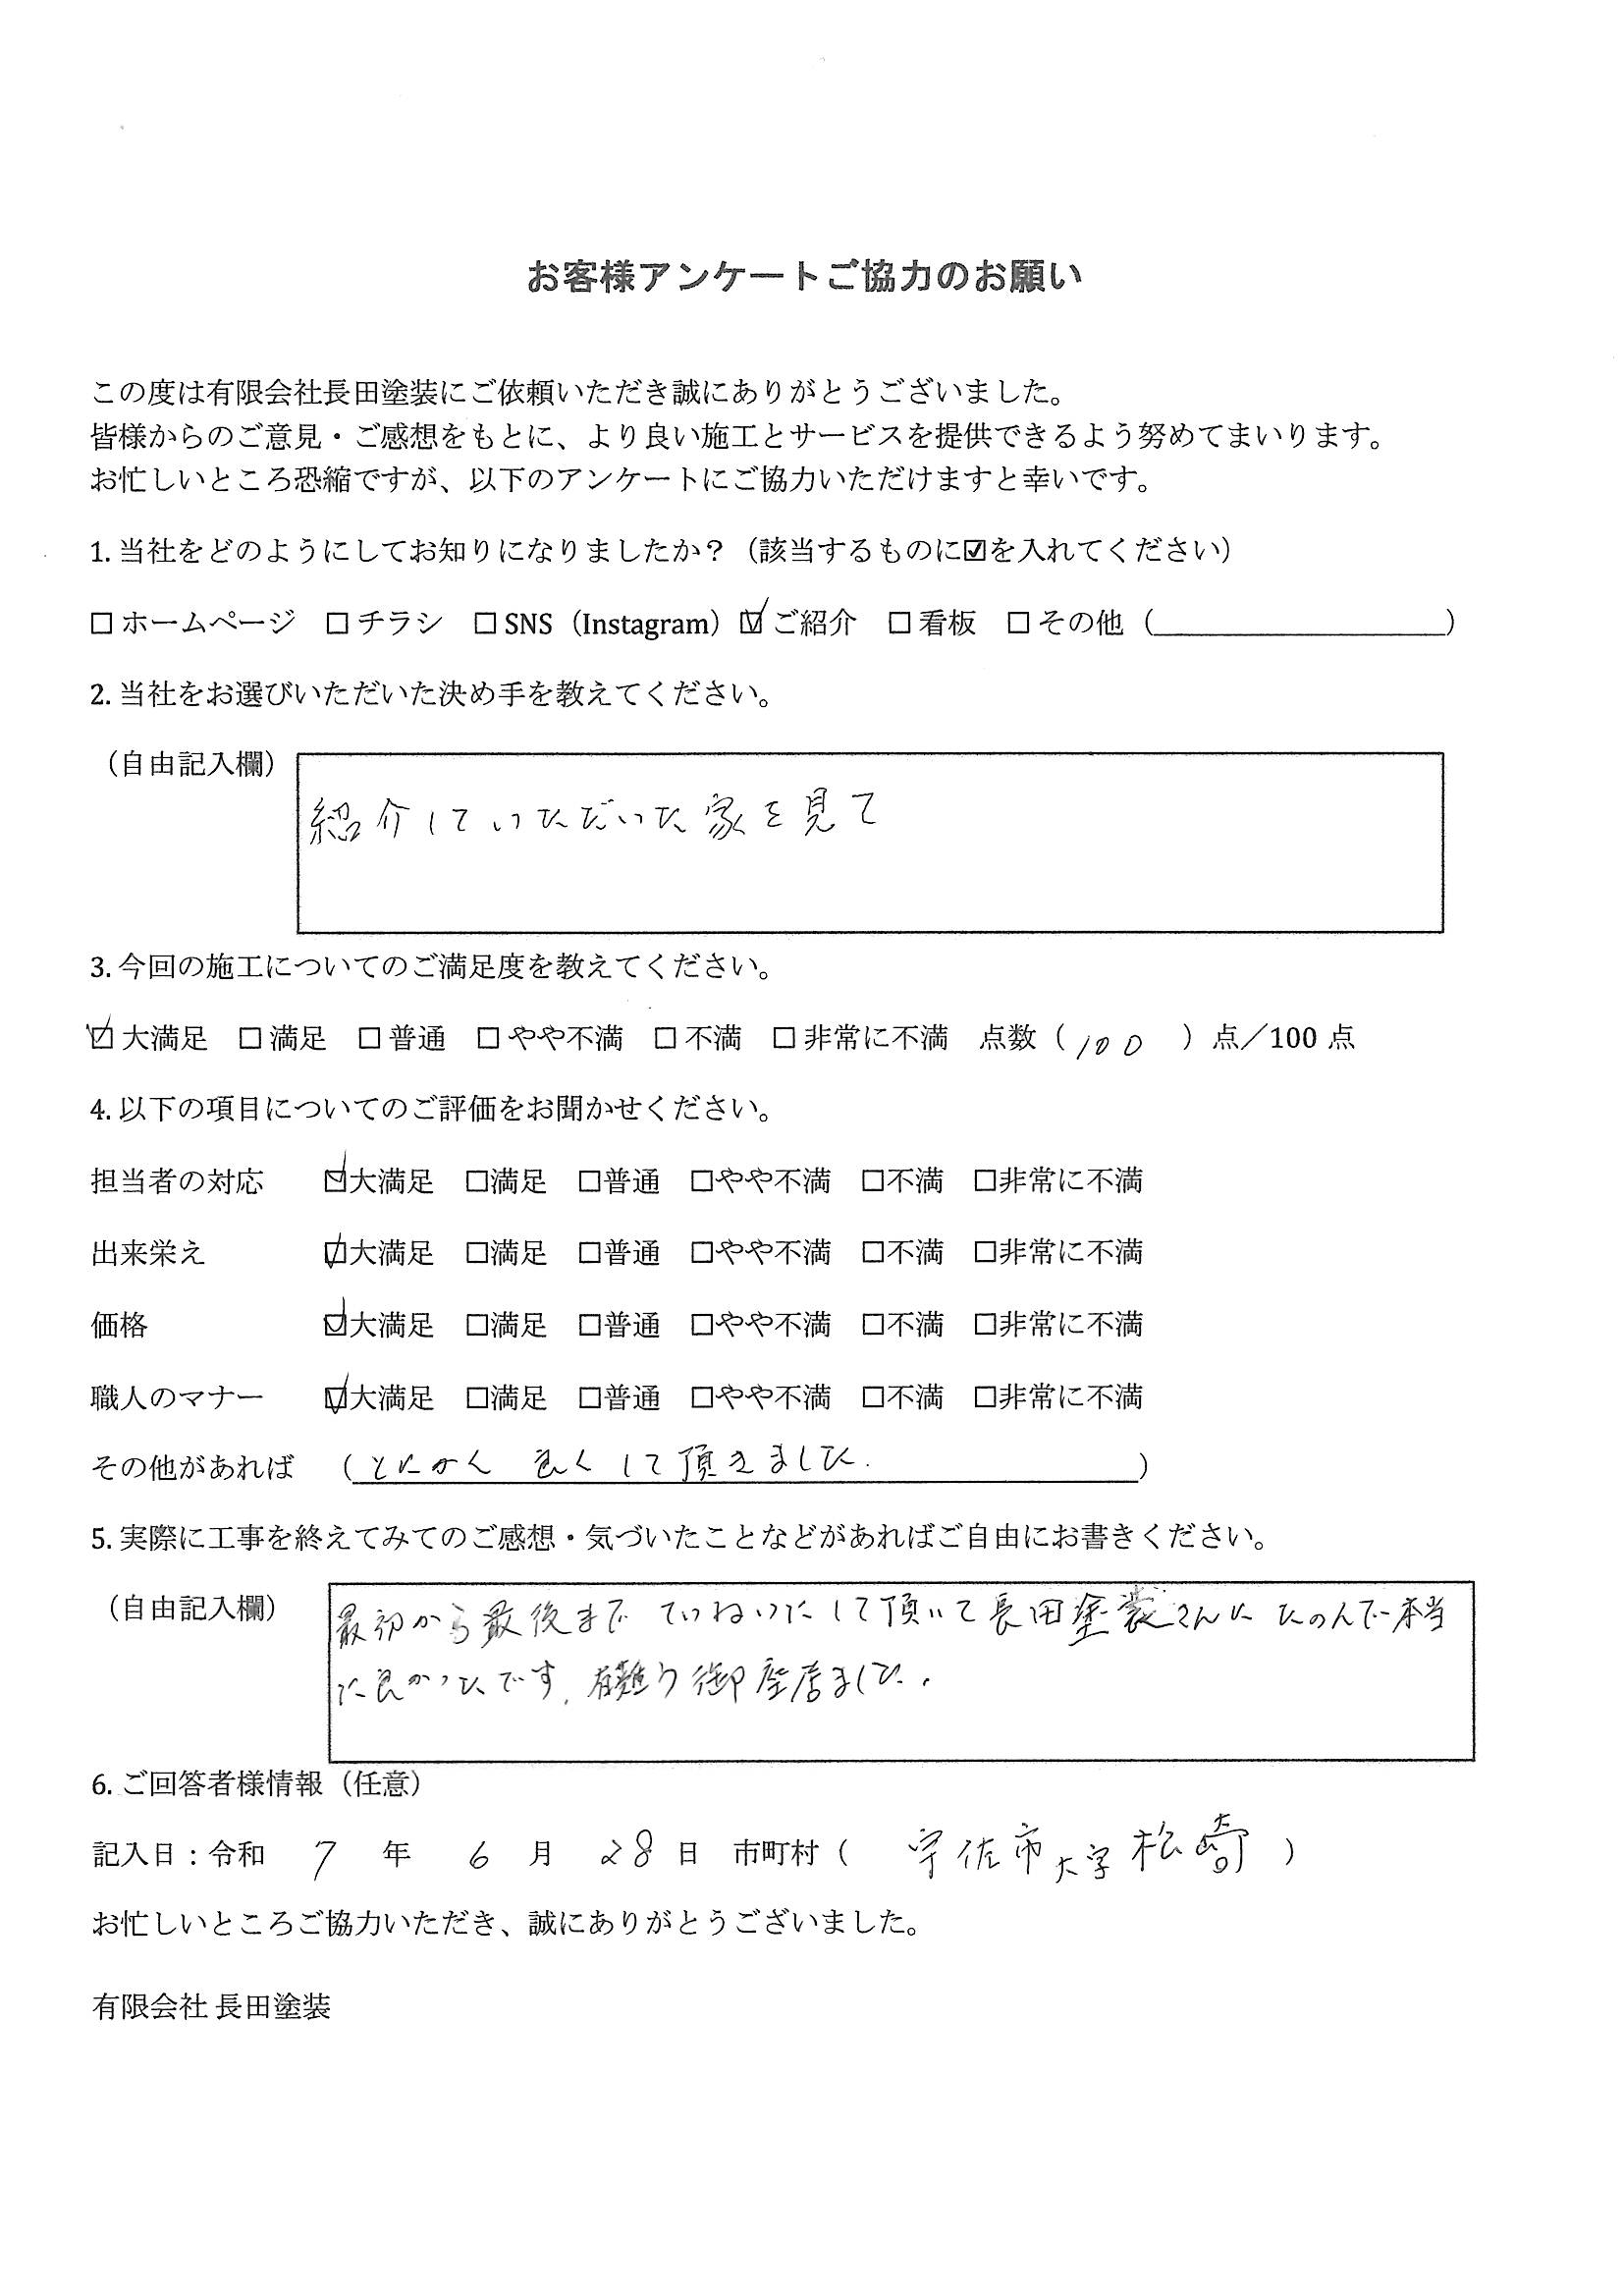 お客様アンケートご協力のお願い
この度は有限会社長田塗装にご依頼いただき誠にありがとうございました。
皆様からのご意見・ご感想をもとに、より良い施工とサービスを提供できるよう努めてまいります。
お忙しいところ恐縮ですが、以下のアンケートにご協力いただけますと幸いです。
1. 当社をどのようにしてお知りになりましたか？（該当するものに☑を入れてください）
☐ ホームページ ☐ チラシ ☐ SNS（Instagram）☑ ご紹介 ☐ 看板 ☐ その他（＿＿＿＿＿＿＿＿＿＿）
2. 当社をお選びいただいた決め手を教えてください。
（自由記入欄）
紹介していただいた家を見て
3. 今回の施工についてのご満足度を教えてください。
☑ 大満足 ☐ 満足 ☐ 普通 ☐ やや不満 ☐ 不満 ☐ 非常に不満 点数（100）点／100 点
4. 以下の項目についてのご評価をお聞かせください。
担当者の対応 ☑大満足 ☐満足 ☐普通 ☐やや不満 ☐不満 ☐非常に不満
出来栄え ☑大満足 ☐満足 ☐普通 ☐やや不満 ☐不満 ☐非常に不満
価格 ☑大満足 ☐満足 ☐普通 ☐やや不満 ☐不満 ☐非常に不満
職人のマナー ☑大満足 ☐満足 ☐普通 ☐やや不満 ☐不満 ☐非常に不満
その他があれば （とにかく 良くして頂きました.）
5. 実際に工事を終えてみてのご感想・気づいたことなどがあればご自由にお書きください。
（自由記入欄）
最初から最後まで ていねいにして頂いて長田塗装さんに たのんで本当
に良かったです. 有難う御座居ました.
6. ご回答者様情報（任意）
記入日：令和 7 年 6 月 28 日 市町村（ 宇佐市大字松崎 ）
お忙しいところご協力いただき、誠にありがとうございました。
有限会社 長田塗装